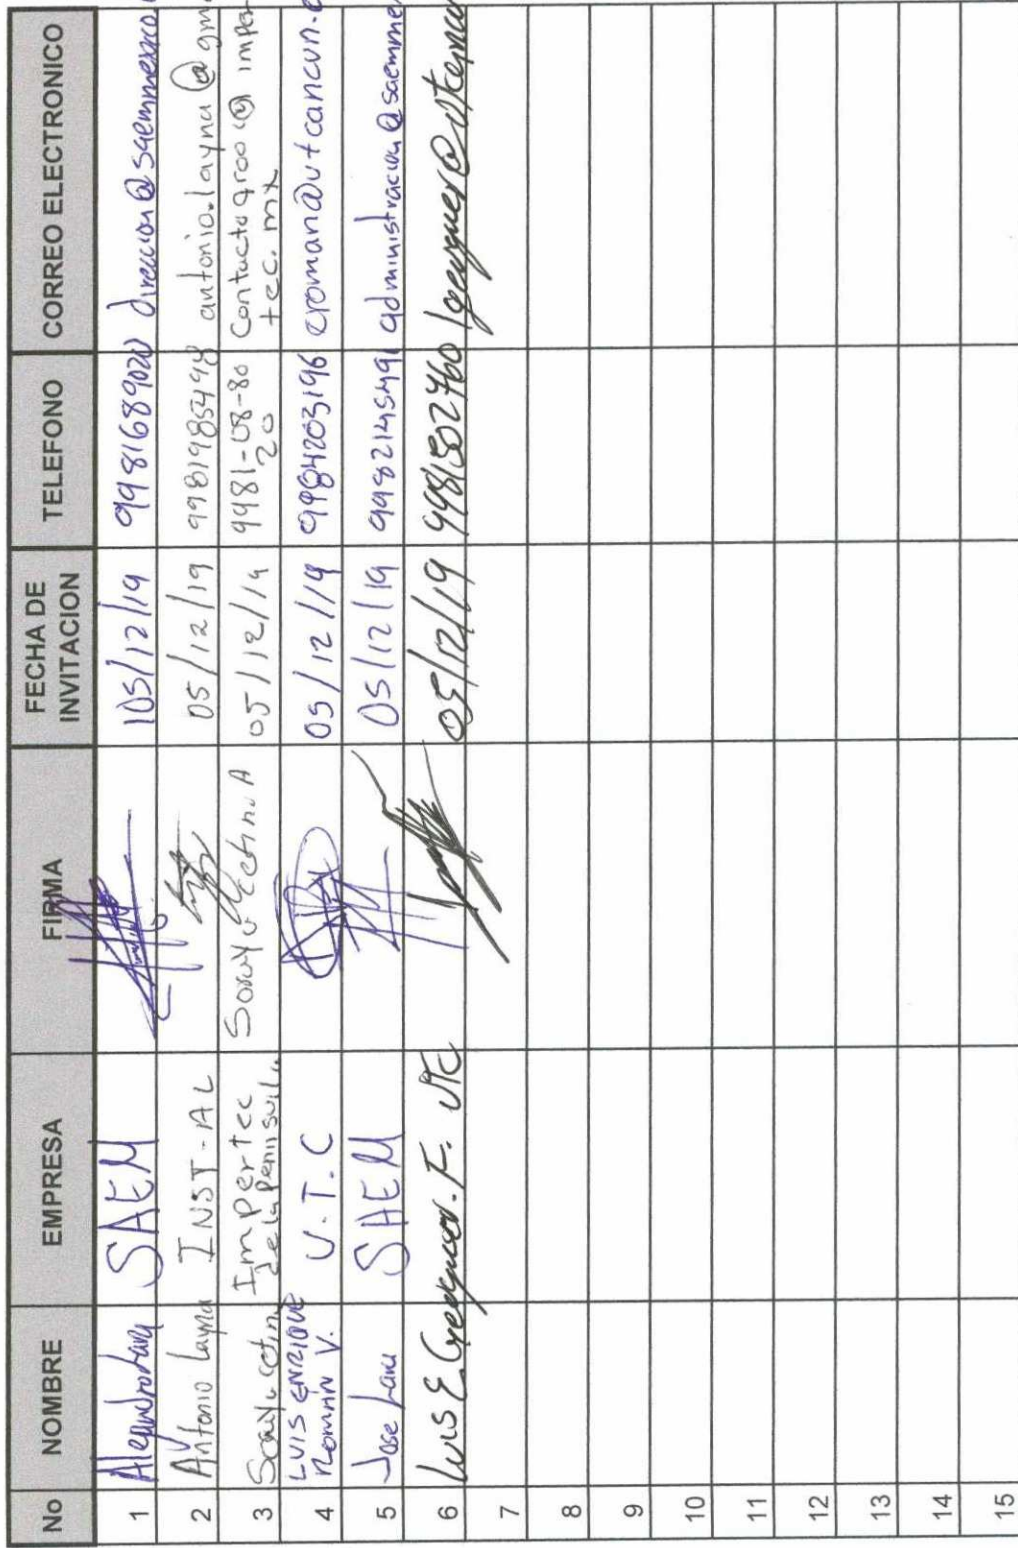 No NOMBRE EMPRESA FIRMA FECHA DE INVITACION TELEFONO CORREO ELECTRONICO
1 SAEM 05/12/19 9981689020 direccion@saemmexico
2 Antonio Layna INST-AL 05/12/19 9981985498 antonio.layna@gm
3 Impertec de la Peninsula 05/12/19 9981-08-80 20 Contactoqroo@imper
tec.mx
4 LUIS ENRIQUE Román V. U.T.C 05/12/19 9984203196 eroman@utcancun.e
5 Jose Lara SAEM 05/12/19 9982145491 administracion@saemme
6 Luis E. UTC 05/12/19 9981502760
7
8
9
10
11
12
13
14
15